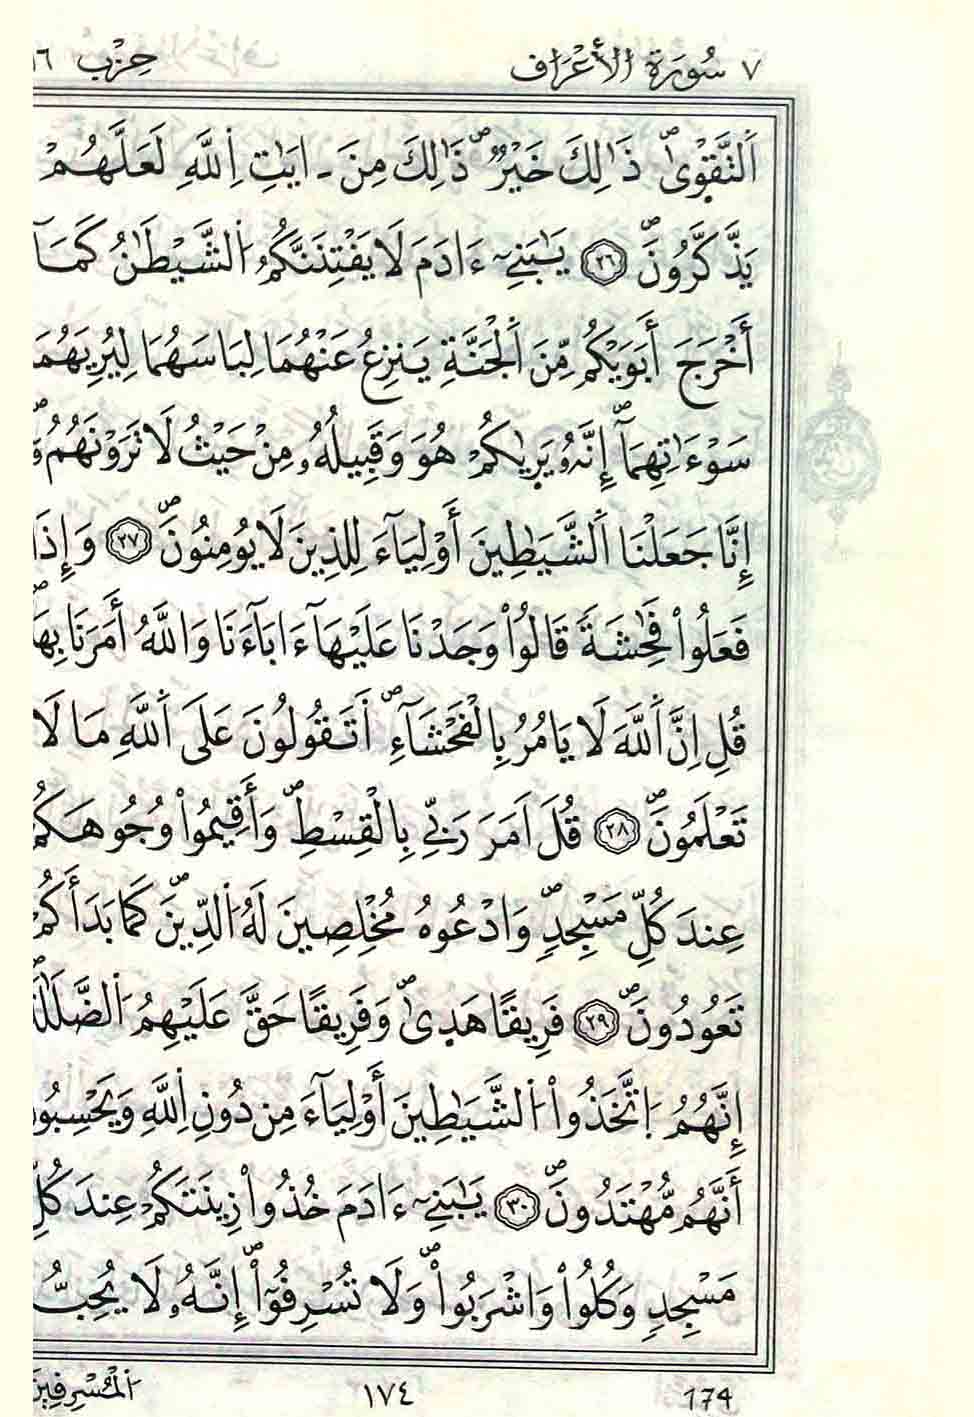 ٧ سُورَةُ الأَعْرَاف حِزْب ١٦
اَ۬لتَّقْو۪ىٰۖ ذَٰلِكَ خَيْرٞۖ ذَٰلِكَ مِنَ ـ ايَٰتِ اِ۬للَّهِ لَعَلَّهُمْ
يَذَّكَّرُونَۖ ٢٦ يَٰبَنِےٓ ءَادَمَ لَا يَفْتِنَنَّكُمُ اُ۬لشَّيْطَٰنُ كَمَآ
أَخْرَجَ أَبَوَيْكُم مِّنَ اَ۬لْجَنَّةِ يَنزِعُ عَنْهُمَا لِبَاسَهُمَا لِيُرِيَهُمَا
سَوْءَٰتِهِمَآۖ إِنَّهُۥ يَر۪ىٰكُمْ هُوَ وَقَبِيلُهُۥ مِنْ حَيْثُ لَا تَرَوْنَهُمُۥٓۖ
إِنَّا جَعَلْنَا اَ۬لشَّيَٰطِينَ أَوْلِيَآءَ لِلذِينَ لَا يُومِنُونَۖ ٢٧ وَإِذَا
فَعَلُواْ فَٰحِشَةٗ قَالُواْ وَجَدْنَا عَلَيْهَآ ءَابَآءَنَا وَاللَّهُ أَمَرَنَا بِهَاۖ
قُلِ اِنَّ اَ۬للَّهَ لَا يَامُرُ بِالْفَحْشَآءِۖ أَتَقُولُونَ عَلَى اَ۬للَّهِ مَا لَا
تَعْلَمُونَۖ ٢٨ قُلَ اَمَرَ رَبِّے بِالْقِسْطِۖ وَأَقِيمُواْ وُجُوهَكُمْ
عِندَ كُلِّ مَسْجِدٖۖ وَادْعُوهُ مُخْلِصِينَ لَهُ اُ۬لدِّينَۖ كَمَا بَدَأَكُمْ
تَعُودُونَۖ ٢٩ فَرِيقاً هَد۪ىٰۖ وَفَرِيقاً حَقَّ عَلَيْهِمُ اُ۬لضَّلَٰلَةُۖ
إِنَّهُمُ اُ۪تَّخَذُواْ اُ۬لشَّيَٰطِينَ أَوْلِيَآءَ مِن دُونِ اِ۬للَّهِ وَيَحْسِبُونَ
أَنَّهُم مُّهْتَدُونَۖ ٣٠ يَٰبَنِےٓ ءَادَمَ خُذُواْ زِينَتَكُمْ عِندَ كُلِّ
مَسْجِدٖ وَكُلُواْ وَاشْرَبُواْۖ وَلَا تُسْرِفُوٓاْۖ إِنَّهُۥ لَا يُحِبُّ
اُ۬لْمُسْرِفِينَ ١٧٤ 174